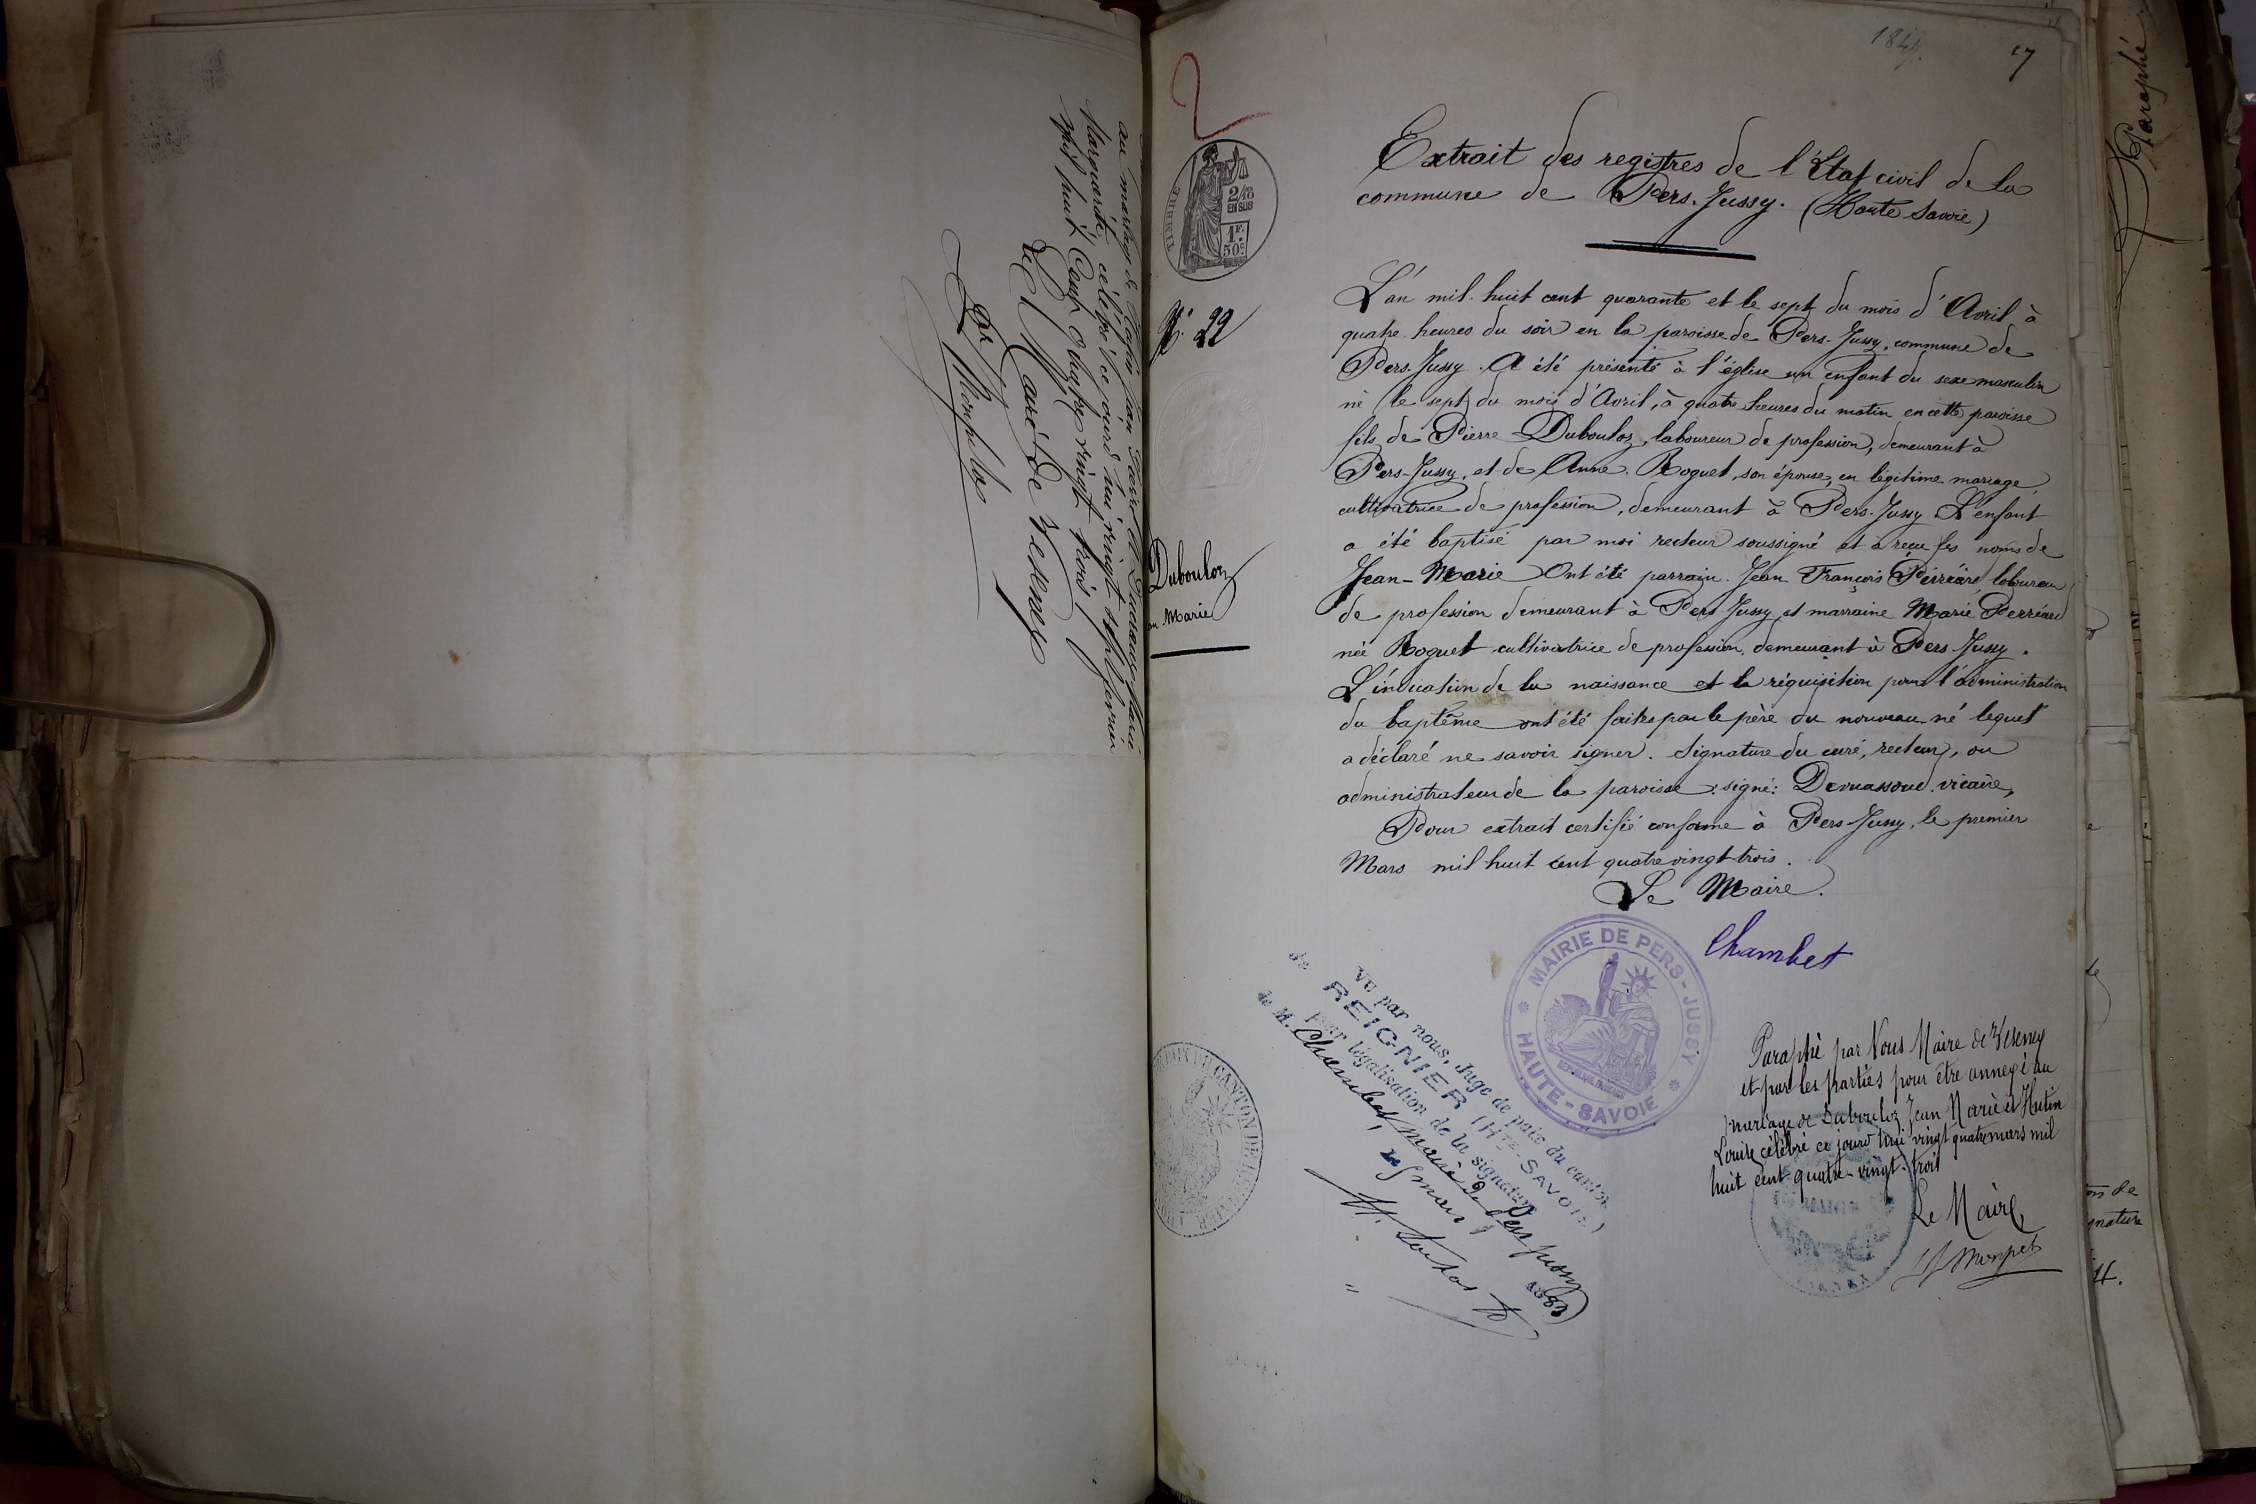 au mariage de
Marguerite, célébré ce jourd'hui vingt sept Janvier
mil huit cent quatre vingt trois
Le Maire de Veseney
1849.
17
Paraphé
Extrait des registres de l'État civil de la
commune de Pers-Jussy. (Haute Savoie)
TIMBRE
2/10
EN SUS
1F.
50c
N° 22
Dubouloz
Marie
L'an mil huit cent quarante et le sept du mois d'Avril à
quatre heures du soir en la paroisse de Pers-Jussy, commune de
Pers-Jussy. A été présenté à l'église un enfant du sexe masculin
né le sept du mois d'Avril, à quatre heures du matin en cette paroisse
fils de Pierre Dubouloz, laboureur de profession, demeurant à
Pers-Jussy, et de Anne Roguet, son épouse, en légitime mariage,
cultivatrice de profession, demeurant à Pers-Jussy. L'enfant
a été baptisé par moi recteur soussigné et a reçu les noms de
Jean-Marie Ont été parrain Jean François Perréard laboureur
de profession demeurant à Pers-Jussy et marraine Marie Perréard
née Roguet cultivatrice de profession, demeurant à Pers Jussy.
L'indication de la naissance et la réquisition pour l'administration
du baptême ont été faites par le père du nouveau-né lequel
a déclaré ne savoir signer. Signature du curé, recteur, ou
administrateur de la paroisse: signé: Devuassoud vicaire,
Pour extrait certifié conforme à Pers-Jussy, le premier
Mars mil huit cent quatre vingt trois.
Le Maire.
Chambet
MAIRIE DE PERS-JUSSY
HAUTE-SAVOIE
Vu par nous, Juge de paix du canton
de REIGNIER (Hte-SAVOIE)
Pour légalisation de la signature
de M. Chambet maire de Pers Jussy
le 5 mars 1883
CANTON DE REIGNIER
Paraphé par Nous Maire de Veseney
et par les parties pour être annexé au
mariage de Dubouloz Jean Marie et Hutin
Louise célébré ce jourd'hui vingt quatre mars mil
huit cent quatre-vingt-trois
Le Maire